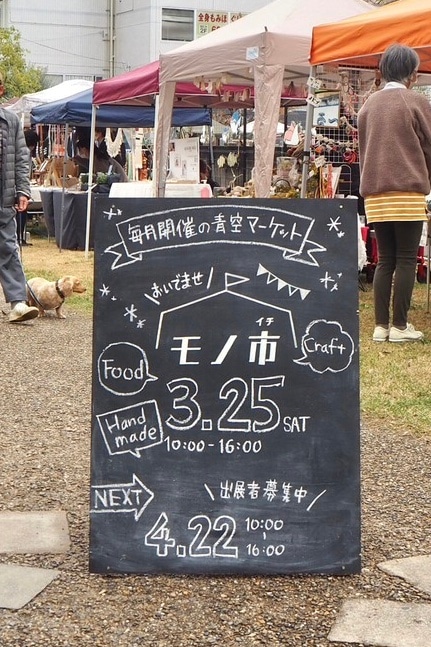 全身もみほぐし
毎月開催の青空マーケット
おいでませ!
イチ
モノ市
Food
Craft
Hand made
3.25 SAT
10:00-16:00
NEXT
出展者募集中
4.22 10:00
16:00